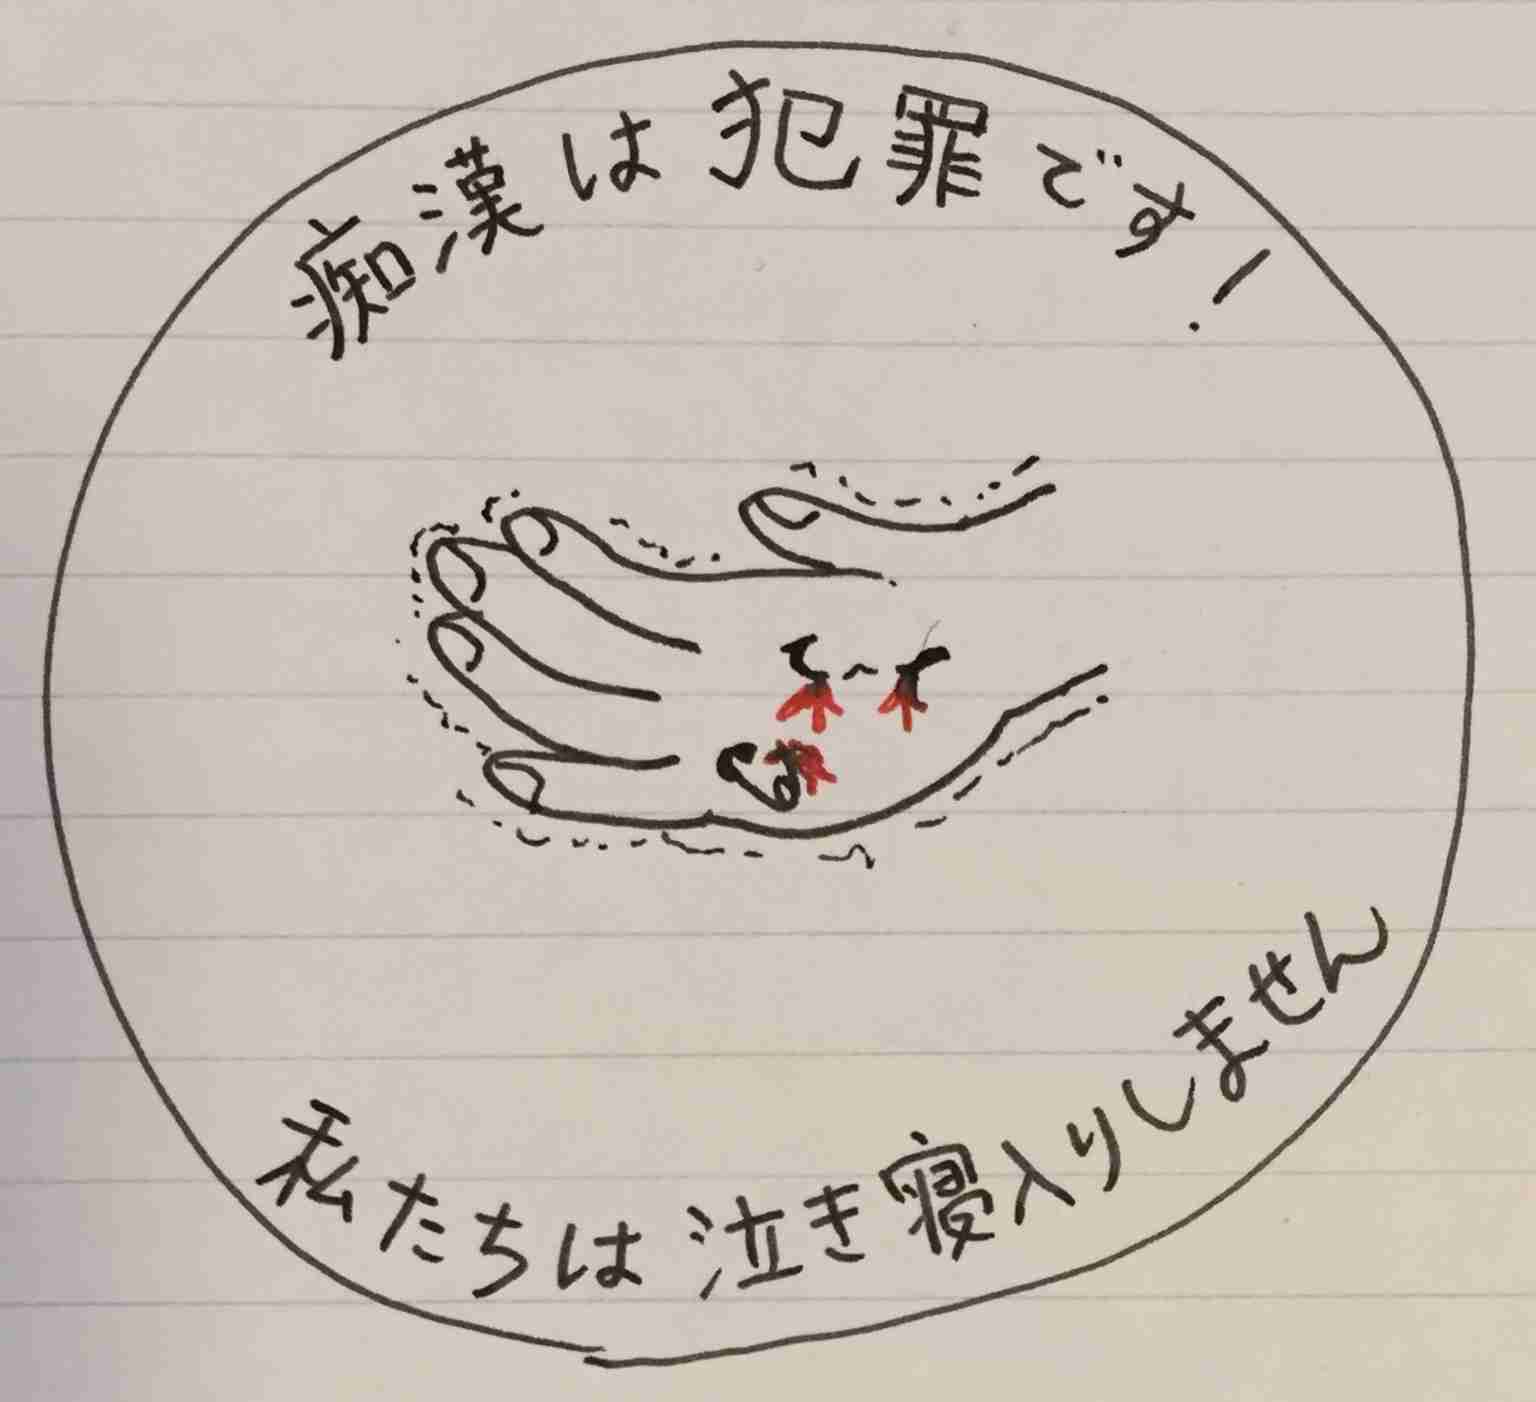 痴漢は犯罪です!
私たちは泣き寝入りしません